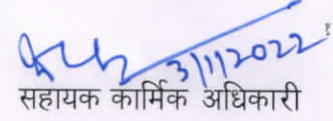 3/1/2022
सहायक कार्मिक अधिकारी